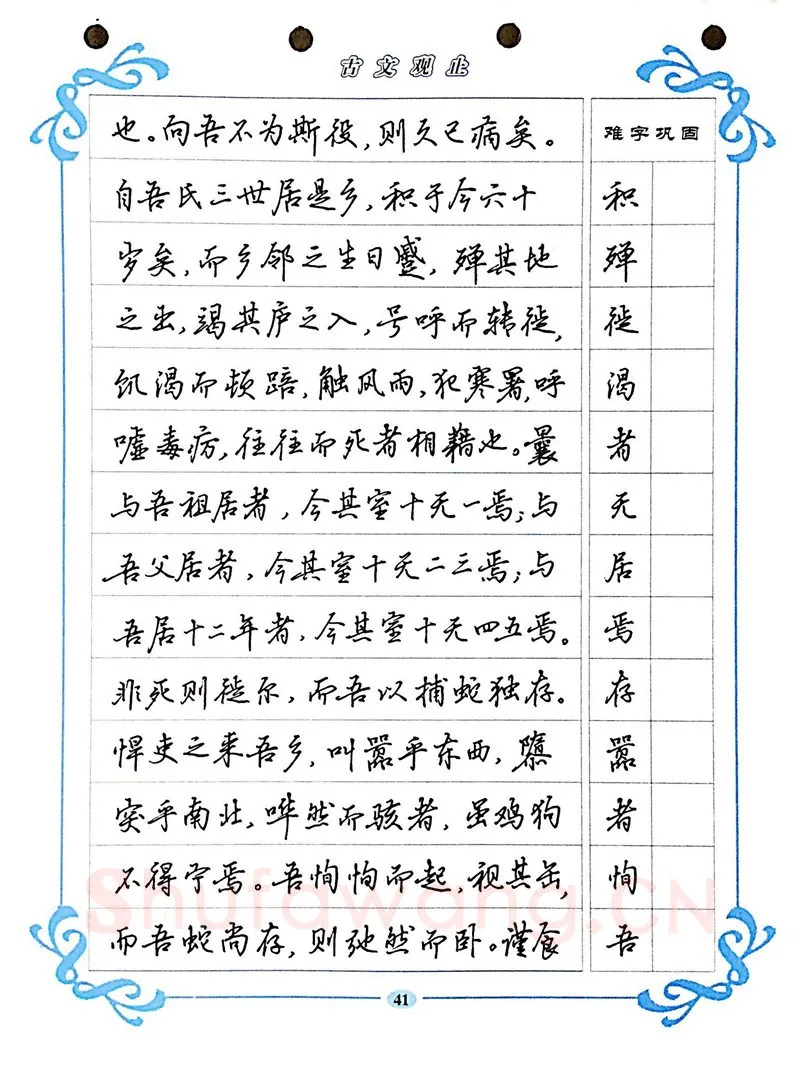 古文观止
也。向吾不为斯役,则久已病矣。
自吾氏三世居是乡,积于今六十
岁矣,而乡邻之生日蹙,殚其地
之出,竭其庐之入,号呼而转徙,
饥渴而顿踣,触风雨,犯寒暑,呼
嘘毒疠,往往而死者相藉也。曩
与吾祖居者,今其室十无一焉;与
吾父居者,今其室十无二三焉;与
吾居十二年者,今其室十无四五焉。
非死则徙尔,而吾以捕蛇独存。
悍吏之来吾乡,叫嚣乎东西,隳
突乎南北,哗然而骇者,虽鸡狗
不得宁焉。吾恂恂而起,视其缶,
而吾蛇尚存,则弛然而卧。谨食
难字巩固
积
殚
徙
渴
者
无
居
焉
存
嚣
者
恂
吾
Shufawang.CN
41